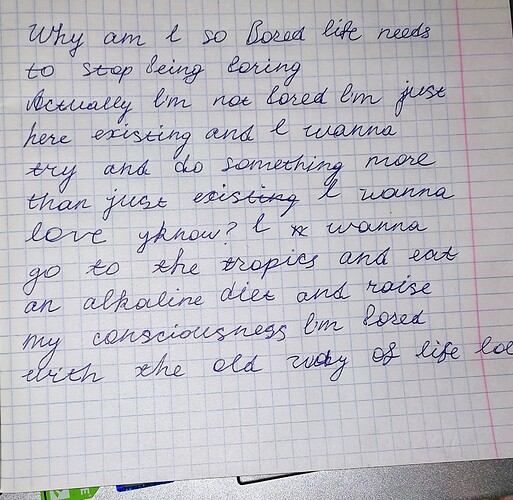 Why am I so Bored life needs
to stop being boring
Actually I'm not bored I'm just
here existing and I wanna
try and do something more
than just existing I wanna
love yknow? I x wanna
go to the tropics and eat
an alkaline diet and raise
my consciousness I'm bored
with the old way of life lol